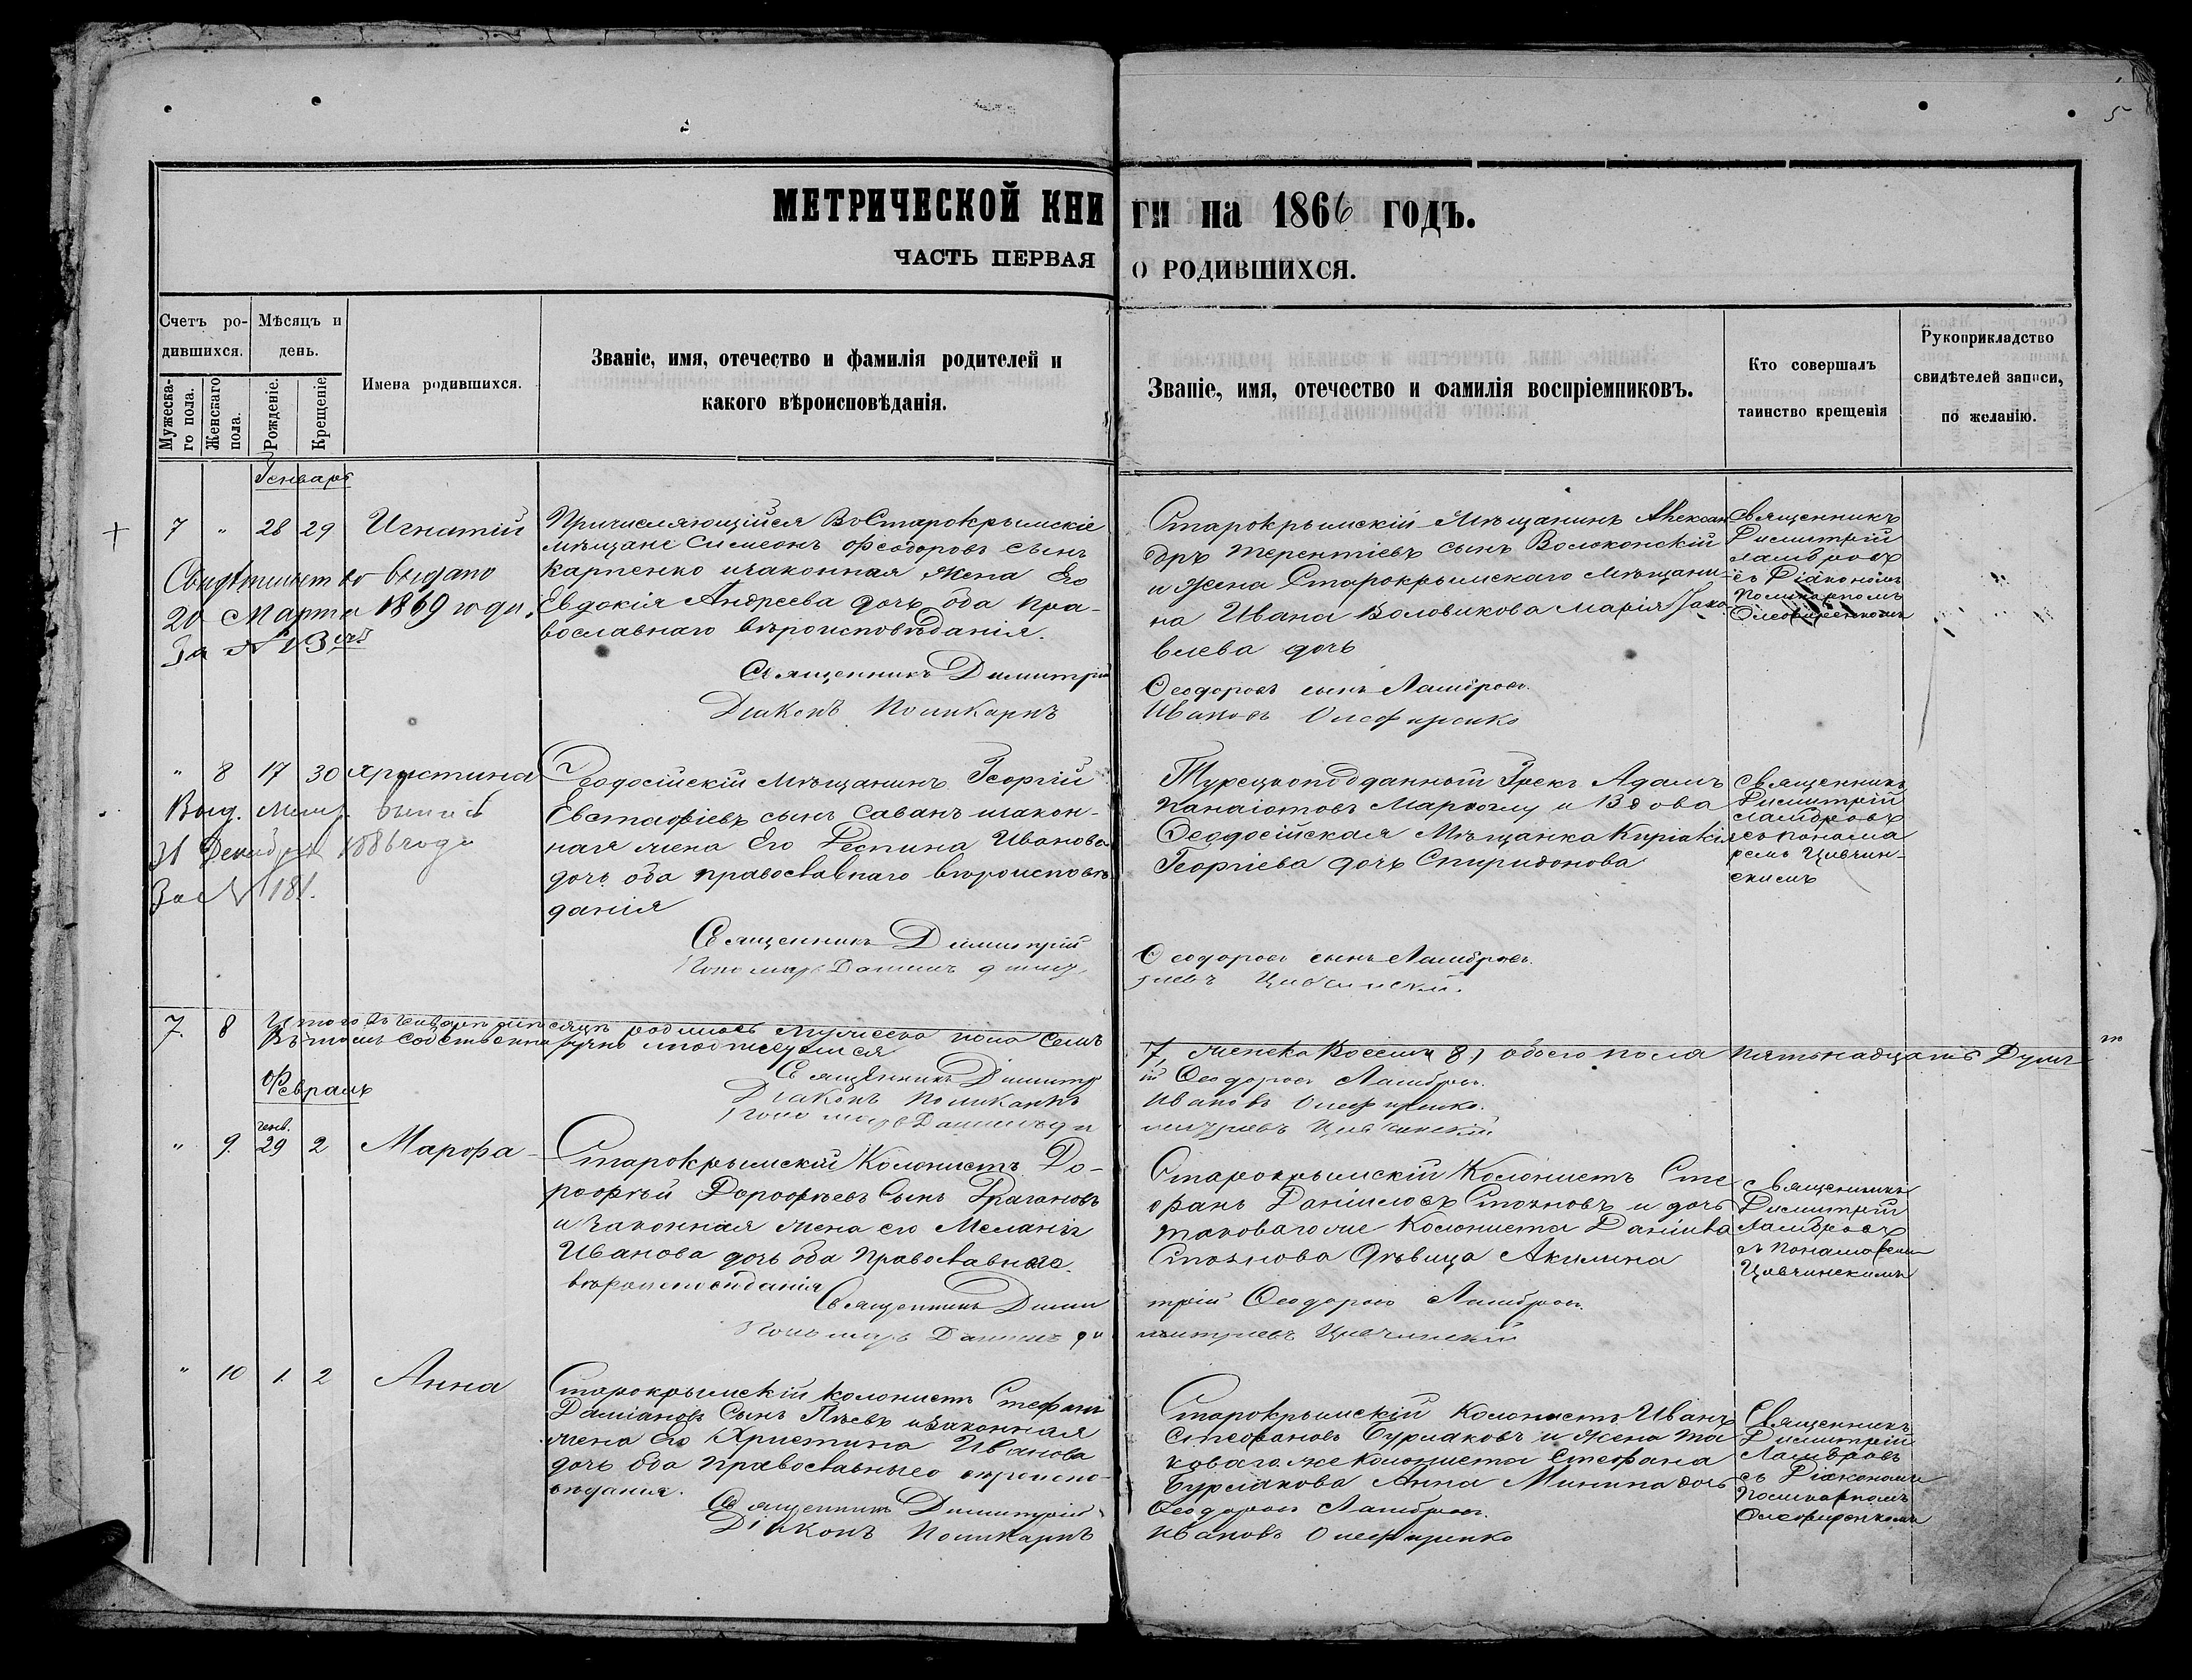 5
МЕТРИЧЕСКОЙ КНИГИ на 1866 годъ.
ЧАСТЬ ПЕРВАЯ О РОДИВШИХСЯ.
Счетъ ро-
дившихся.
Мужеска-
го пола.
Женскаго
пола.
Мѣсяцъ и
день.
Рожденіе.
Крещеніе
Имена родившихся.
Званіе, имя, отечество и фамилія родителей и
какого вѣроисповѣданія.
Званіе, имя, отечество и фамилія воспріемниковъ.
Кто совершалъ
таинство крещенія
Рукоприкладство
свидѣтелей записи,
по желанію.
Генварь
7 " 28 29 Игнатій
Свидѣтельство выдано
20 Марта 1869 года.
За № 43
Причисляющійся Во Старокрымскіе
мѣщане Симеонъ Феодоровъ сынъ
Карпенко изаконная жена Его
Евдокія Андреева дочь оба пра-
вославнаго вѣроисповѣданія.
Старокрымскій Мѣщанинъ Алексан
дръ Терентіевъ сынъ Волоконскій
и жена Старокрымскаго Мѣщани-
на Ивана Воловикова Марія Яко
влева дочь
Священникъ
Димитрій
Ламбровъ
съ Діакономъ
Поликарпомъ
Олефиренкомъ
Священникъ Димитрій Феодоровъ сынъ Ламбровъ.
Діаконъ Поликарпъ Ивановъ Олефиренко
" 8 17 30 Христина
Выд. метр.
31 Декабря 1886 года
За № 181.
Феодосійскій Мѣщанинъ Георгій
Евстафіевъ сынъ Саванъ изакон-
ная жена Его Деспина Иванова
дочь оба православнаго вѣроисповѣ
данія
Турецкоподданный Грекъ Адамъ
Панаіотовъ и Вдова
Феодосійская Мѣщанка Киріакія
Георгіева дочь Спиридонова
Священникъ
Димитрій
Ламбровъ
съ понама
ремъ Цивчин-
скимъ
Священникъ Димитрій Феодоровъ сынъ Ламбровъ.
Пономарь Даніилъ
7. 8 Итого въ Генварѣ мѣсяцѣ родилось мужеска пола семь 7, женска Восемь 8, обоего пола пятьнадцать Душъ
Въ томъ собственноручно и подписуемся
Священникъ Димитрій Феодоровъ Ламбровъ.
Діаконъ Поликарпъ Ивановъ Олефиренко.
Пономарь Даніилъ
Февраль
генв.
" 9. 29 2 Марфа
Старокрымскій Колонистъ До-
рофѣй Дорофѣевъ Сынъ Драгановъ
и законная жена его Меланія
Иванова дочь оба Православнаго
вѣроисповѣданія
Старокрымскій Колонистъ Сте
фанъ Даніиловъ Стояновъ и дочь
таковагоже Колониста Даніила
Стоянова Дѣвица Акилина
Священникъ
Димитрій
Ламбровъ
съ понамаремъ
Цивчинскимъ
Священникъ Димитрій Феодоровъ Ламбровъ.
Пономарь Даніилъ Димитріевъ Цивчинскій
" 10 1. 2 Анна
Старокрымскій колонистъ Стефанъ
Даміановъ Сынъ изаконная
жена Его Христина Иванова
дочь оба православнаго вѣроиспо-
вѣданія.
Старокрымскій Колонистъ Иванъ
Стефановъ Бурлаковъ и жена та
коваго же колониста Стефана
Бурлакова Анна Минина дочь
Священникъ
Димитрій
Ламбровъ
съ Діакономъ
Поликарпомъ
Олефиренкомъ
Священникъ Димитрій Феодоровъ Ламбровъ.
Діаконъ Поликарпъ Ивановъ Олефиренко